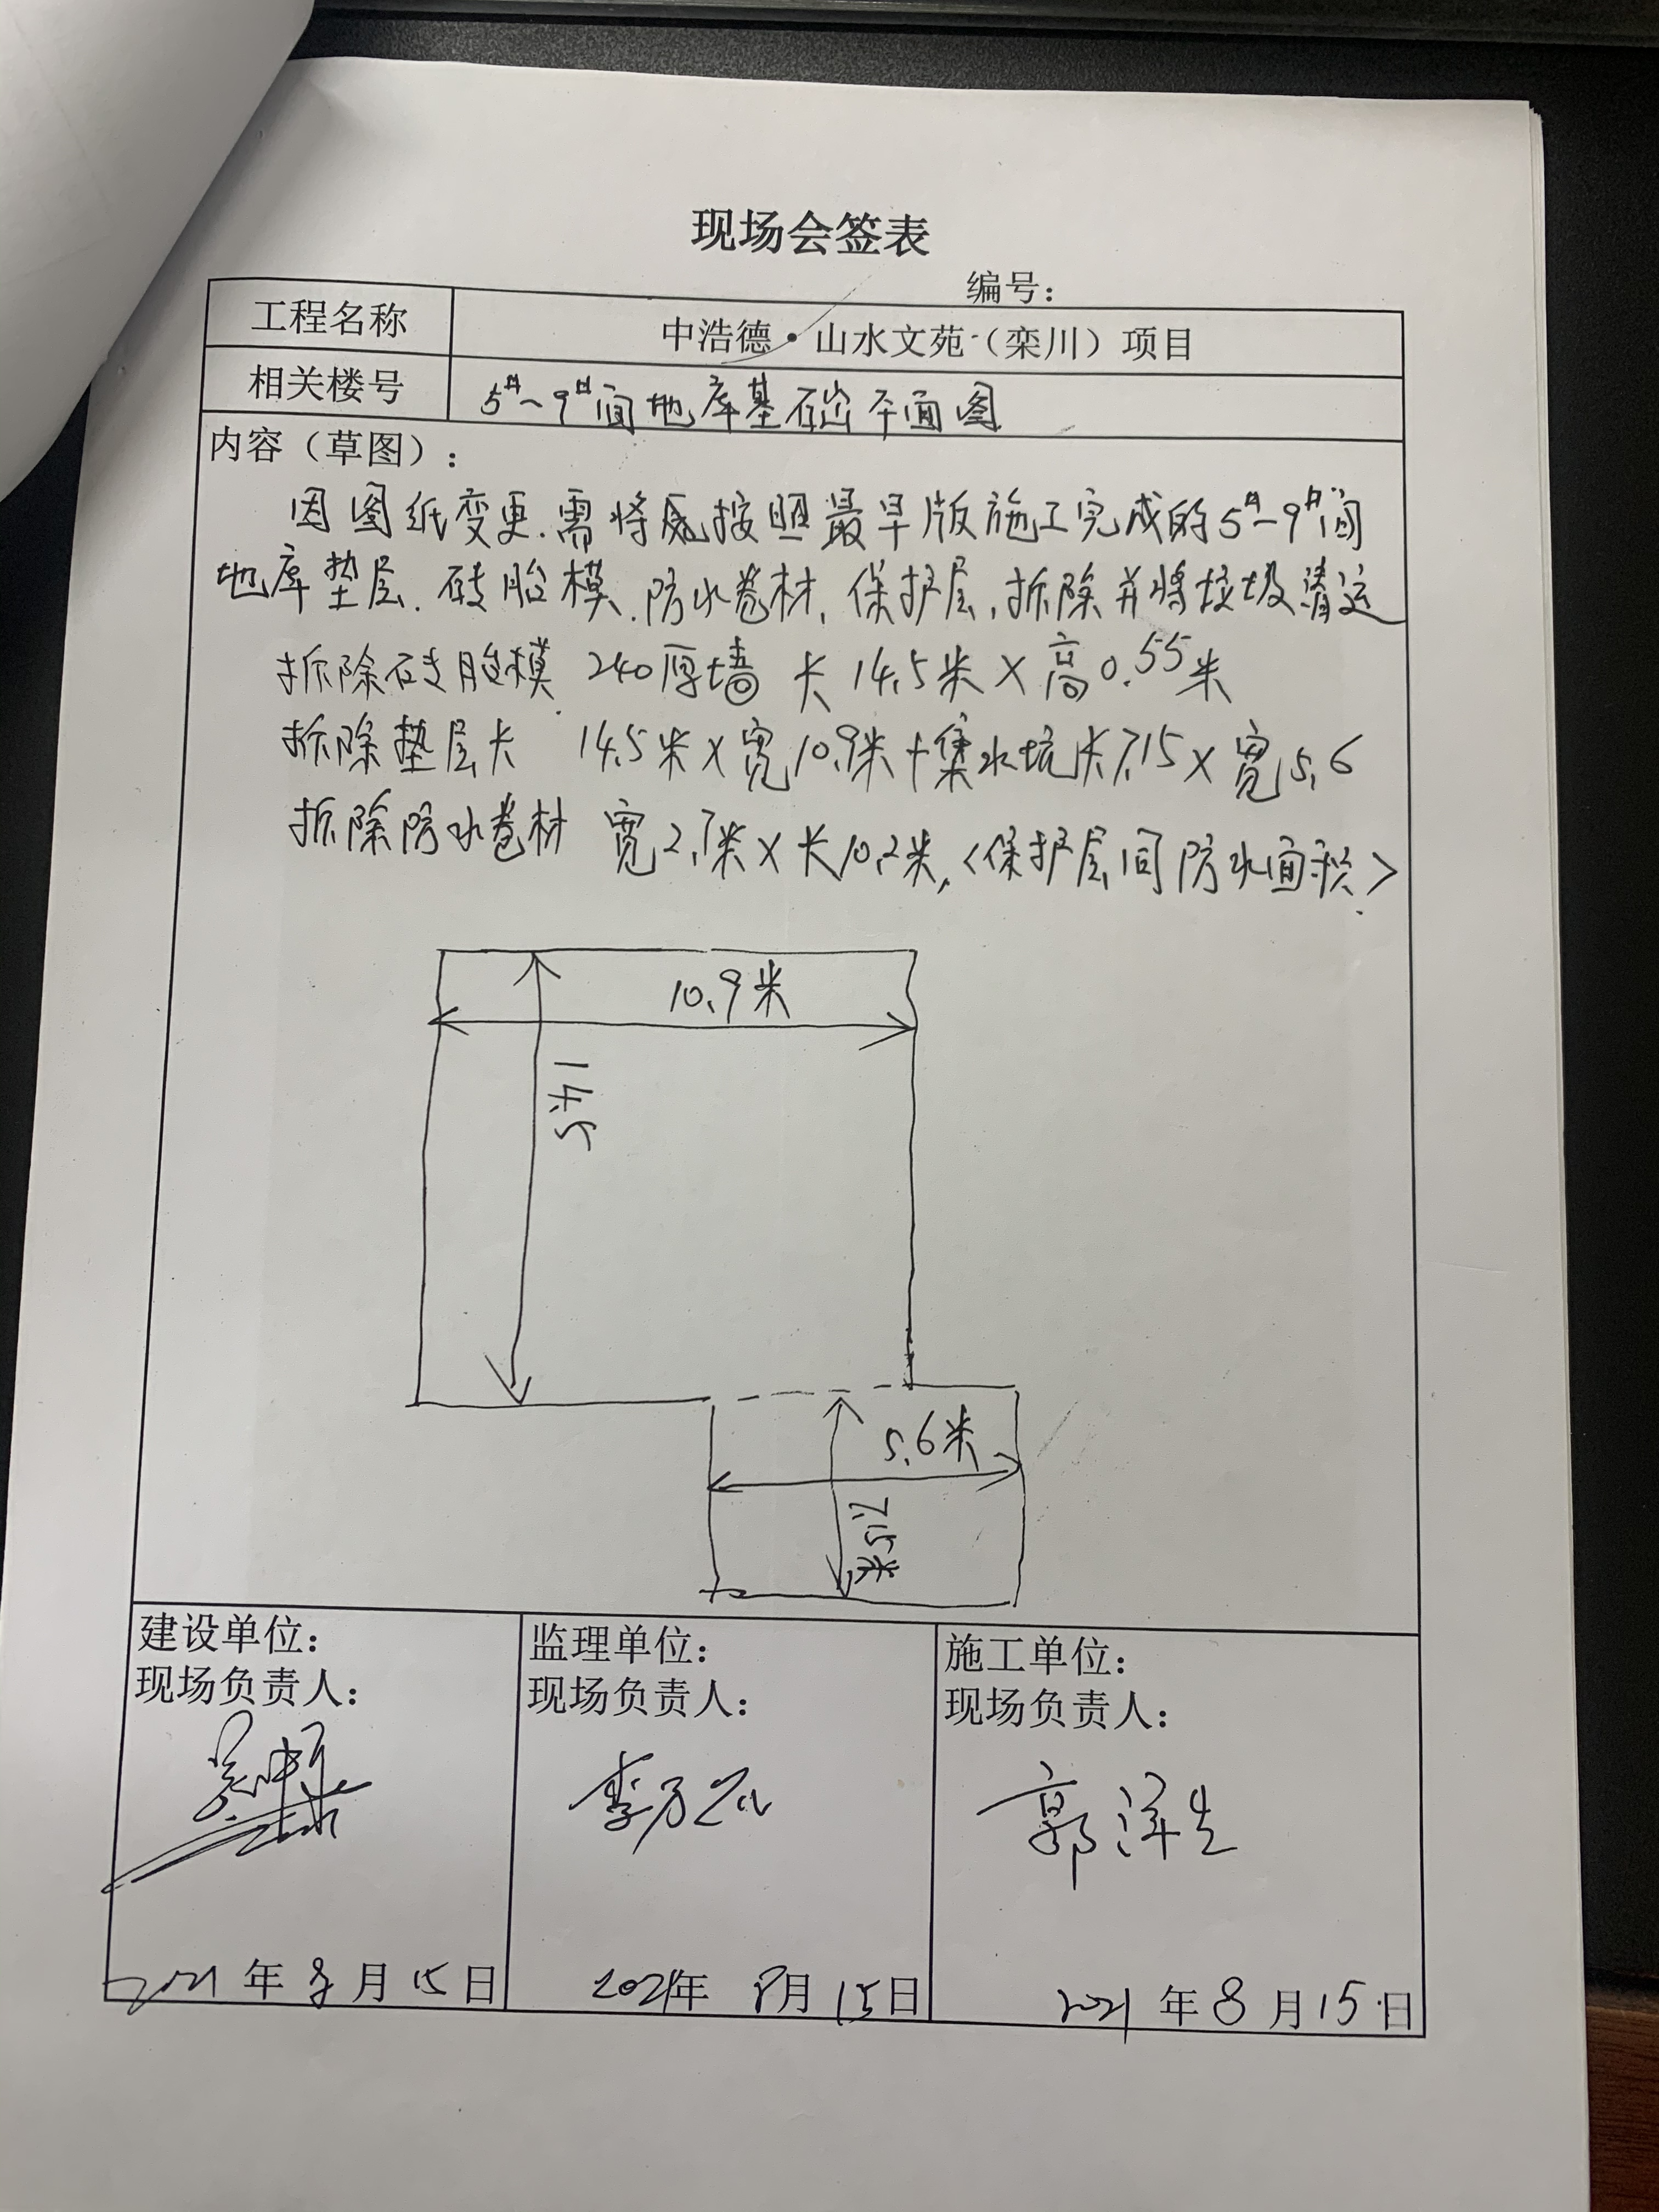 现场会签表
编号：
工程名称 中浩德·山水文苑（栾川）项目
相关楼号 5#~9#间地库基础平面图
内容（草图）：
因图纸变更.需将原按照最早版施工完成的5#~9#间
地库垫层.砖胎模.防水卷材,保护层,拆除并将垃圾清运
拆除砖胎模 240厚墙 长14.5米×高0.55米
拆除垫层长 14.5米×宽10.9米+集水坑长7.15×宽5.6
拆除防水卷材 宽2.7米×长10.2米,<保护层间防水面积>
10.9米
14.5
5.6米
7.15米
建设单位：
现场负责人：
2021年8月15日
监理单位：
现场负责人：
李万
2021年8月15日
施工单位：
现场负责人：
郭洋生
2021年8月15日